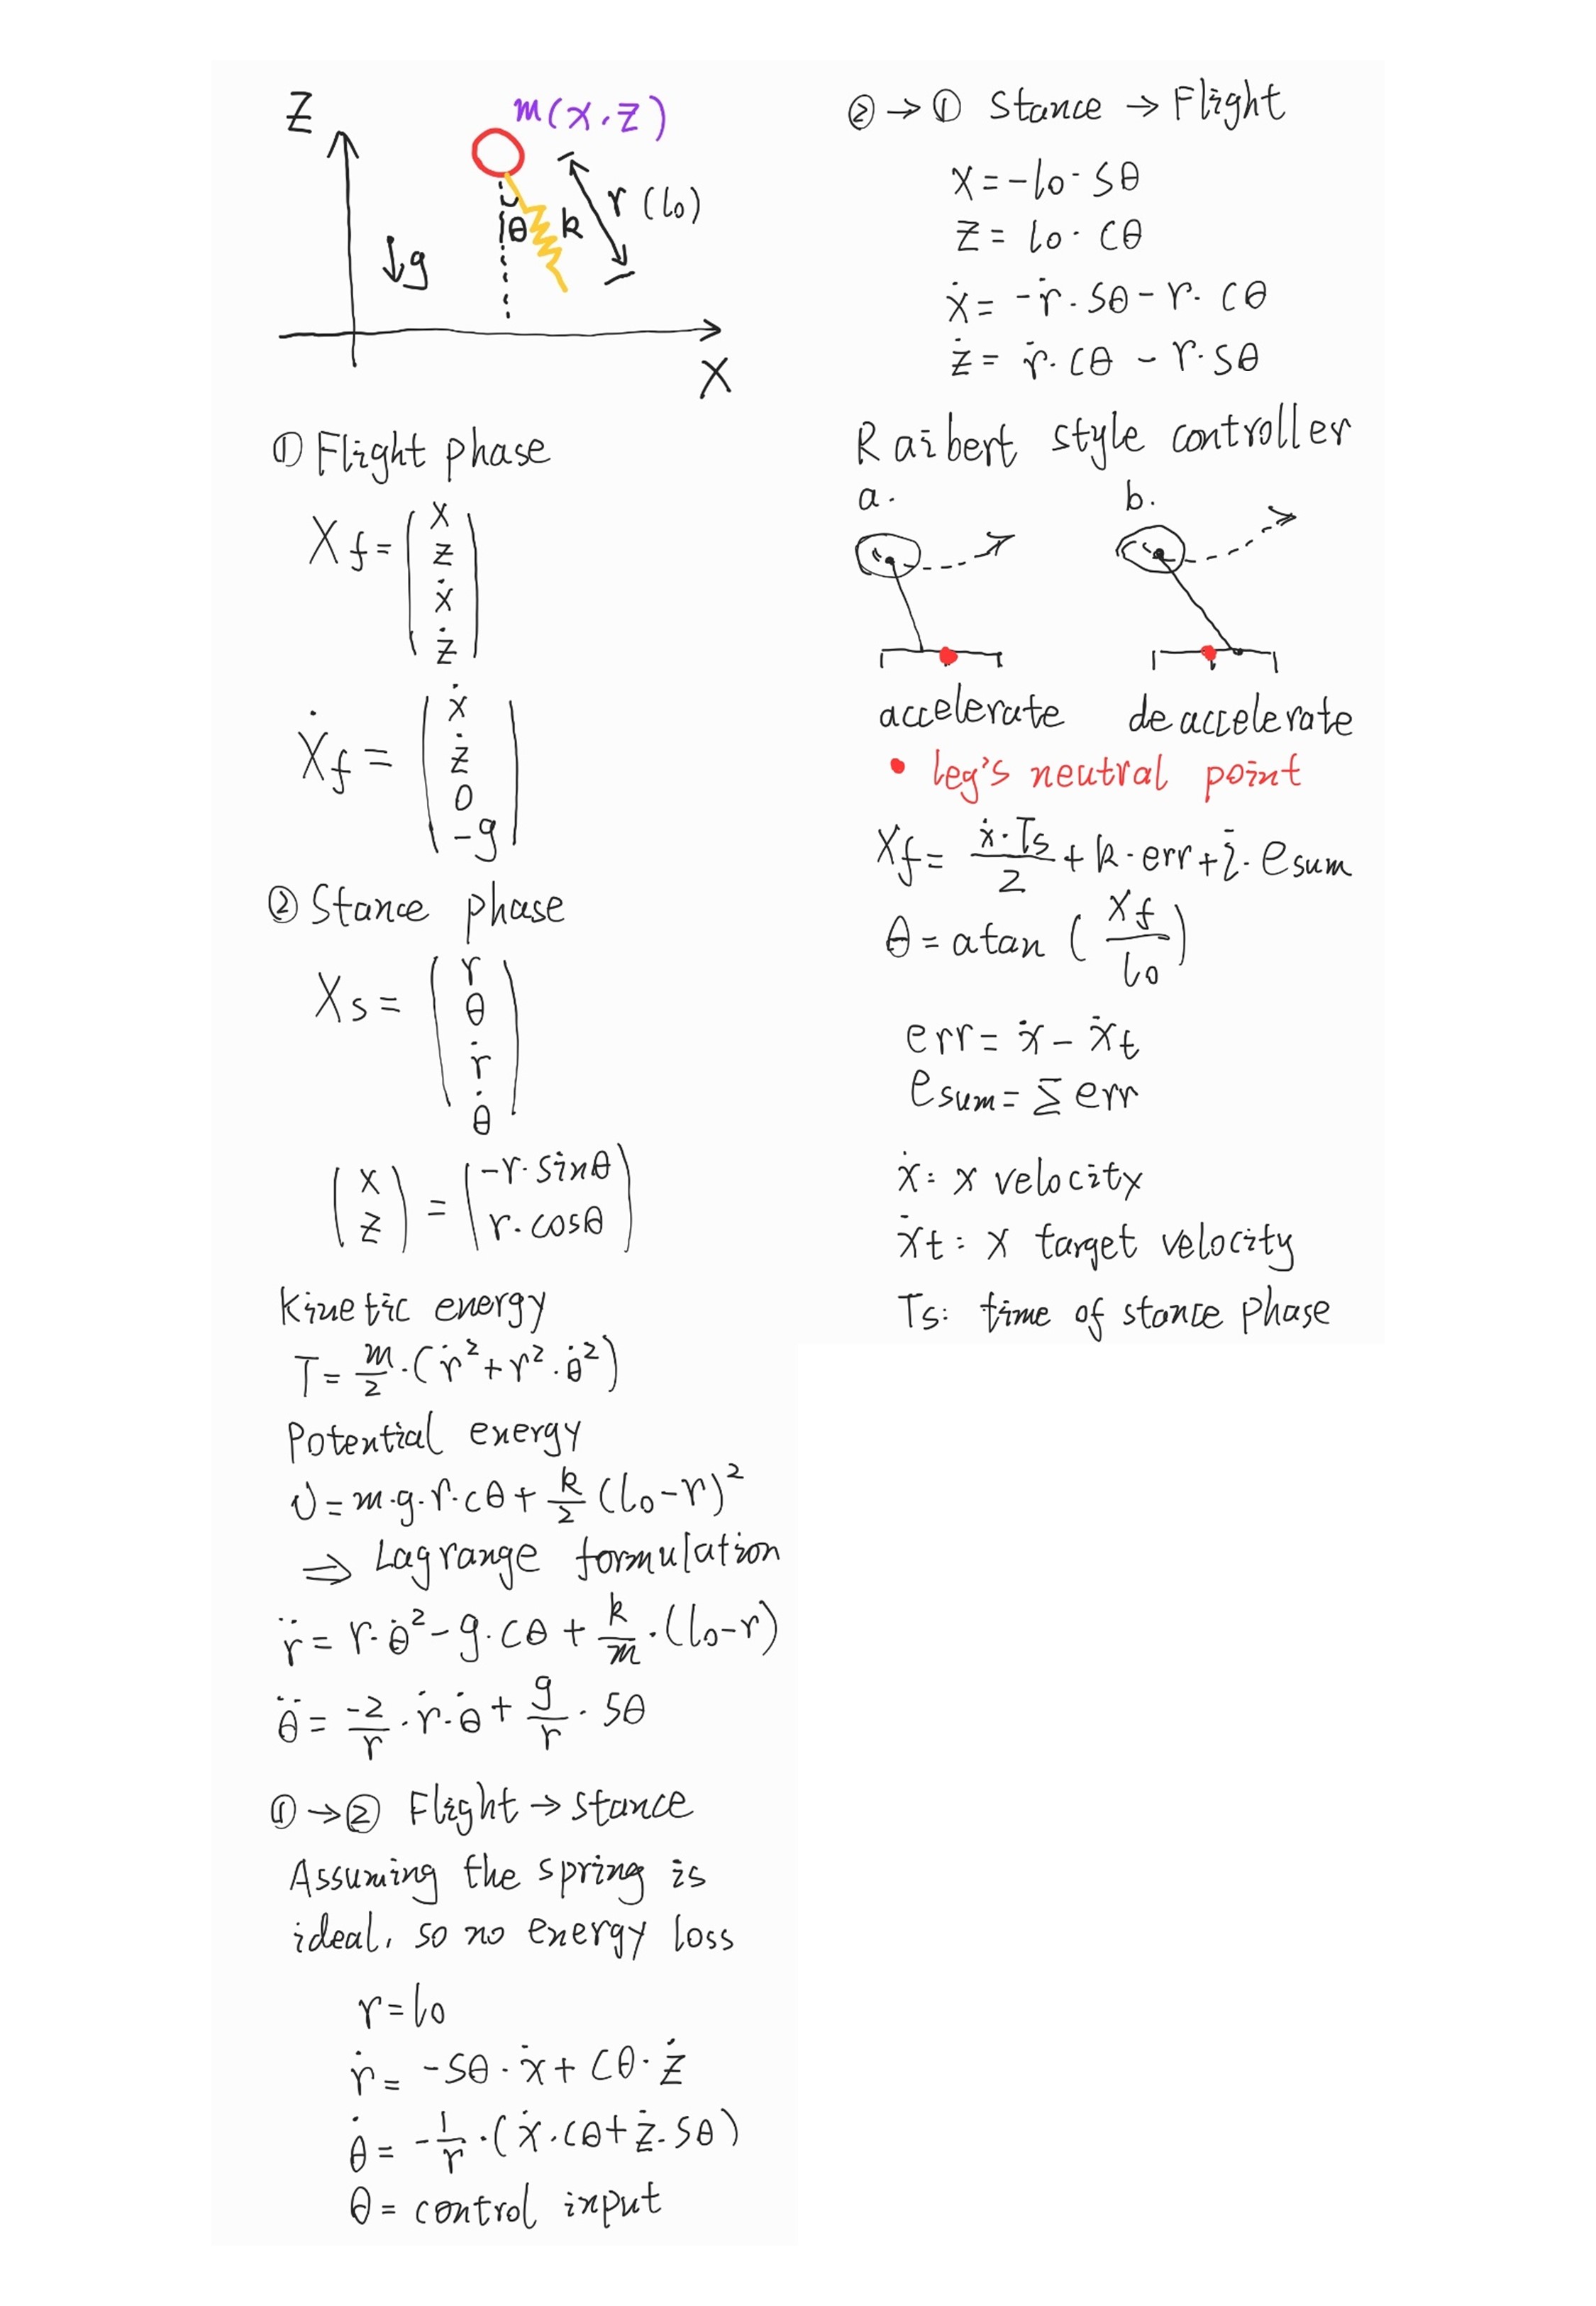 Z
m(x,z)
r (l₀)
θ
k
↓g
X
① Flight phase
X_f = (x z ẋ ż)
Ẋ_f = (ẋ ż 0 -g)
② Stance phase
X_s = (r θ ṙ θ̇)
(x z) = (-r·sinθ r·cosθ)
Kinetic energy
T = m/2 ·(ṙ² + r²·θ̇²)
Potential energy
U = m·g·r·cθ + k/2 (l₀-r)²
⇒ Lagrange formulation
r̈ = r·θ̇² - g·cθ + k/m ·(l₀-r)
θ̈ = -2/r ·ṙ·θ̇ + g/r · sθ
①→② Flight → stance
Assuming the spring is
ideal, so no energy loss
r = l₀
ṙ = -sθ·ẋ + cθ·ż
θ̇ = -1/r ·(ẋ·cθ + ż·sθ)
θ = control input
②→① Stance → Flight
x = -l₀·sθ
z = l₀·cθ
ẋ = -ṙ·sθ - r·cθ
ż = ṙ·cθ - r·sθ
Raibert style controller
a. b.
accelerate deaccelerate
• leg's neutral point
X_f = ẋ·Ts/2 + k·err + i·e_sum
θ = atan (x_f/l₀)
err = ẋ - ẋt
e_sum = Σ err
ẋ: x velocity
ẋt: x target velocity
Ts: time of stance phase